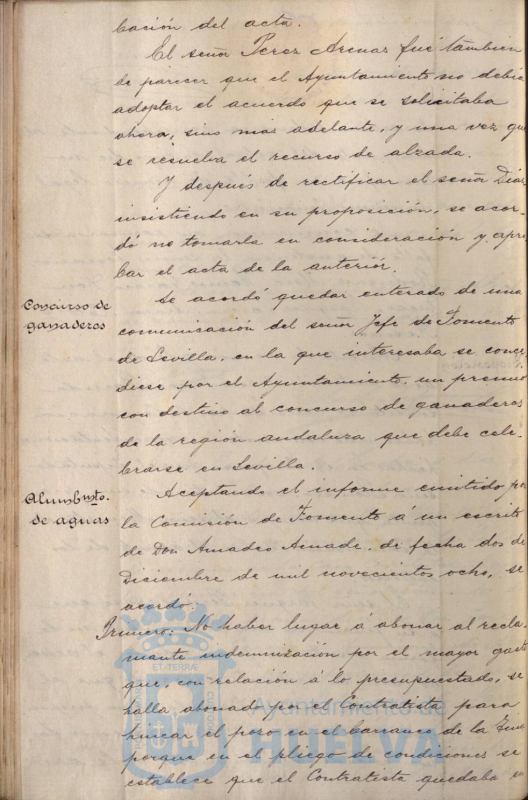 bación del acta.
El señor Perez Arenas fué tambien
de parecer que el Ayuntamiento no debia
adoptar el acuerdo que se solicitaba
ahora, sino mas adelante, y una vez que
se resuelva el recurso de alzada.
Y después de rectificar el señor Diaz
insistiendo en su proposición, se acor
dó no tomarla en consideración y apro
bar el acta de la anteriór.
Concurso de
ganaderos
Se acordó quedar enterado de una
comunicación del señor Jefe de Fomento
de Sevilla, en la que interesaba se conce
diese por el Ayuntamiento, un premio
con destino al concurso de ganaderos
de la región andaluza que debe cele-
brarse en Sevilla.
Alumbmto.
de aguas
Aceptando el informe emitido por
la Comisión de Fomento á un escrito
de Don Amadeo Amade, de fecha dos de
Diciembre de mil novecientos ocho, se
acordó:
Primero. No haber lugar á abonar al recla
mante indemnización por el mayor gasto
que, con relación á lo presupuestado, se
halla abonado por el Contratista para
hincar el pozo en el barranco de la
porque en el pliego de condiciones se
establece que el Contratista quedaba
Ayuntamiento de
HUELVA